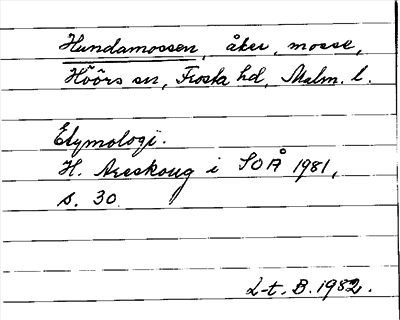 Hundamossen, åker, mosse,
Höörs sn, Frosta hd, Malm. l.
Etymologi.
H. Areskoug i SOÅ 1981,
s. 30.
L-t. B. 1982.